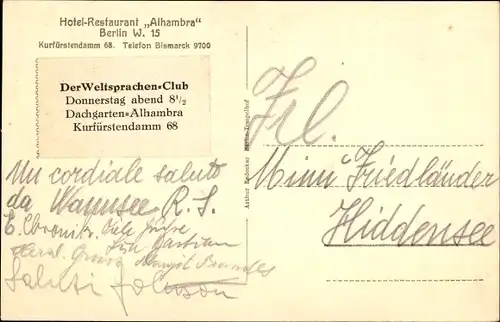 Hotel-Restaurant „Alhambra“
Berlin W. 15
Kurfürstendamm 68. Telefon Bismarck 9700
Der Weltsprachen=Club
Donnerstag abend 8½
Dachgarten=Alhambra
Kurfürstendamm 68
Un cordiale saluto
da Wannsee R. S.
Viele Grüße
Herzl. Gruss Margot Brandes
Saluti Johnson
Arthur Redecker Berlin-Tempelhof
Frl.
Minni Friedländer
Hiddensee